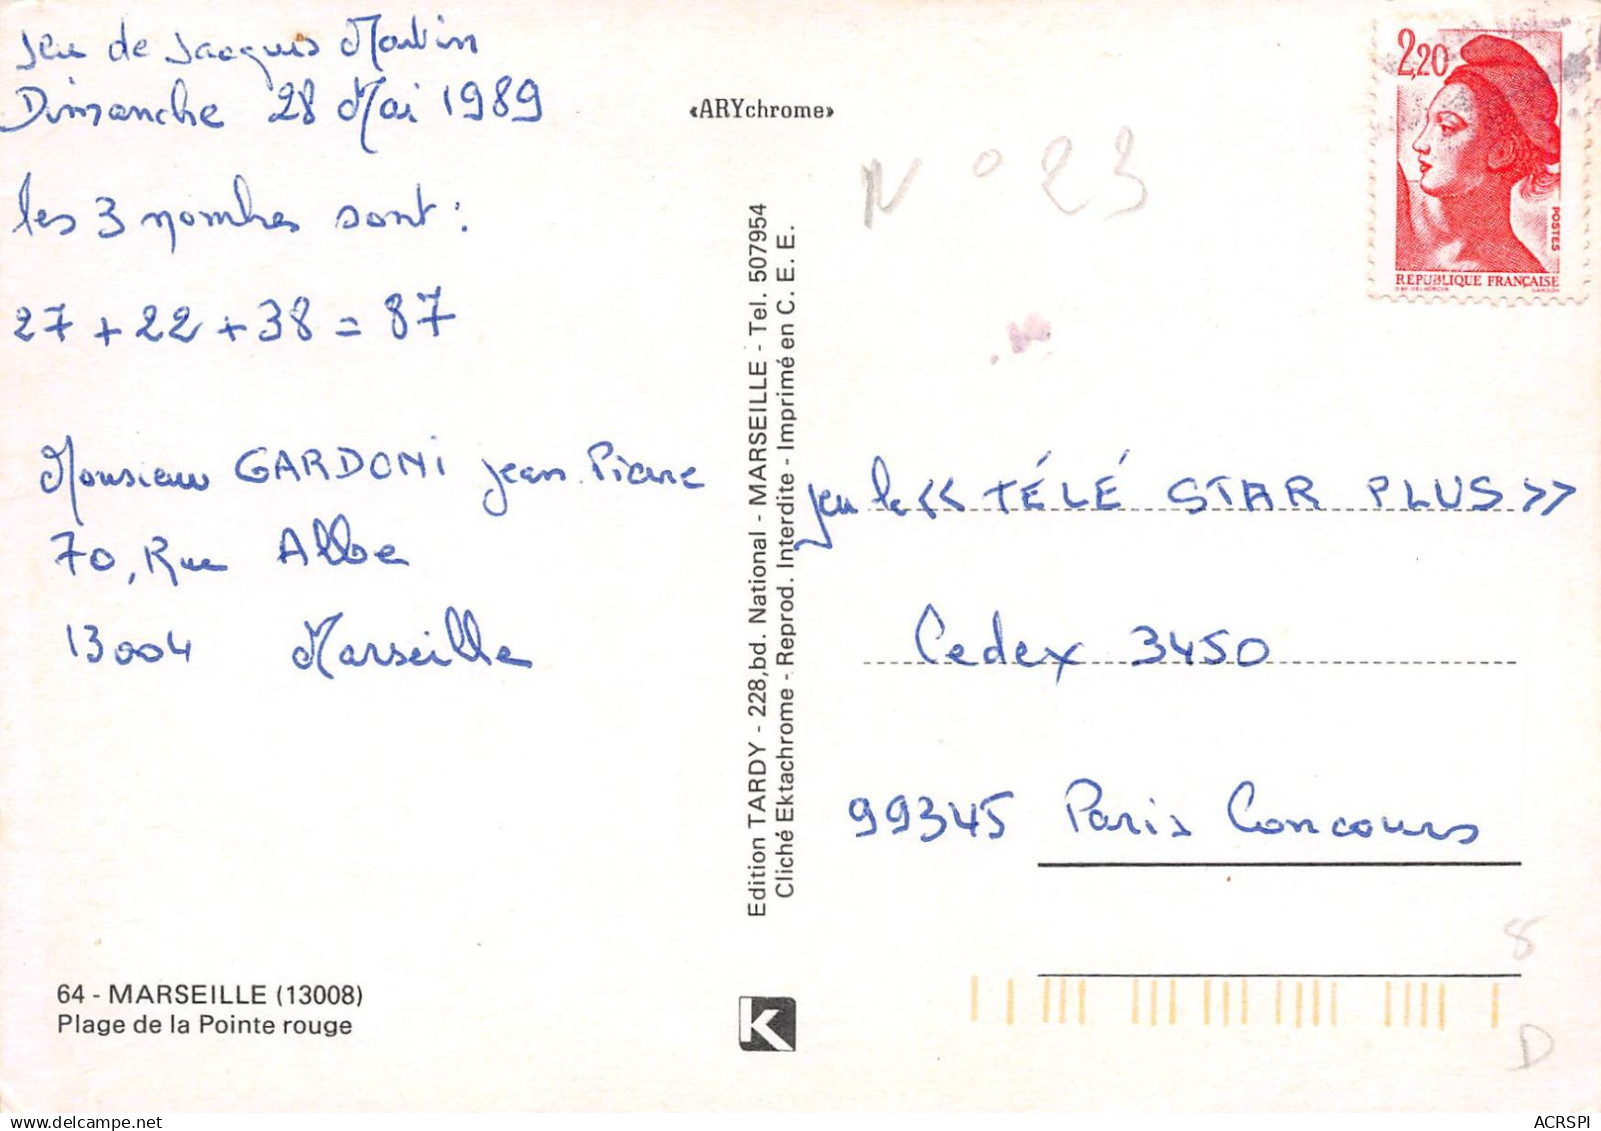 Jeu de Jacques Martin
Dimanche 28 Mai 1989
les 3 nombres sont :
27 + 22 + 38 = 87
Monsieur GARDONI Jean-Pierre
70, Rue Albe
13004 Marseille
64 - MARSEILLE (13008)
Plage de la Pointe rouge
«ARYchrome»
Edition TARDY - 228,bd. National - MARSEILLE - Tel. 507954
Cliché Ektachrome - Reprod. Interdite - Imprimé en C. E. E.
K
N° 23
2,20
POSTES
REPUBLIQUE FRANÇAISE
Jeu le << TÉLÉ STAR PLUS >>
Cedex 3450
99345 Paris Concours
8
D
delcampe.net
ACRSPI